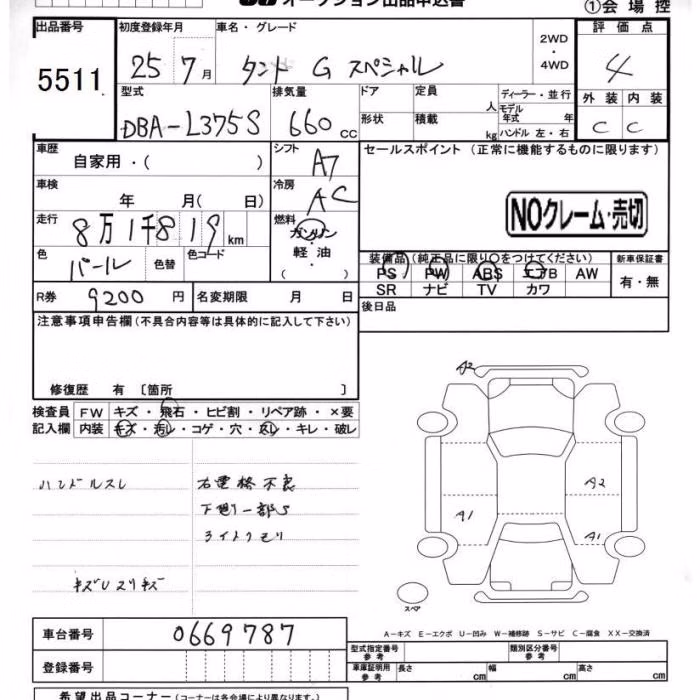 オークション出品申込書 ①会場控
出品番号 初度登録年月 車名・グレード 2WD・4WD 評価点
5511 25 7月 タント G スペシャル 4
型式 排気量 ドア 定員 人 ディーラー・並行 外装 内装
DBA-L375S 660 cc 形状 積載 kg モデル年式 年 ハンドル 左・右 C C
車歴 自家用・( ) シフト A7 セールスポイント (正常に機能するものに限ります)
車検 年 月( 日) 冷房 AC
NOクレーム・売切
走行 8万1千819 km 燃料 ガソリン・軽油
色 パール 色替 色コード ( )
装備品(純正品に限り○をつけてください) 新車保証書
PS PW ABS エアB AW 有・無
SR ナビ TV カワ
R券 9200円 名変期限 月 日 後日品
注意事項申告欄(不具合内容等は具体的に記入して下さい)
修復歴 有 〔箇所 〕
検査員 FW キズ・飛石・ヒビ割・リペア跡・×要
記入欄 内装 キズ・汚レ・コゲ・穴・スレ・キレ・破レ
A2
ハンドルスレ 右電格不良
下廻り一部S
ライトクモリ
A2
A1
A1
キズUスリキズ
スペア
車台番号 0669787
A-キズ E-エクボ U-凹み W-補修跡 S-サビ C-腐食 XX-交換済
型式指定番号 参考 類別区分番号 参考
登録番号 車庫証明用 参考 長さ cm 幅 cm 高さ cm
希望出品コーナー(コーナーは各会場により異なります)